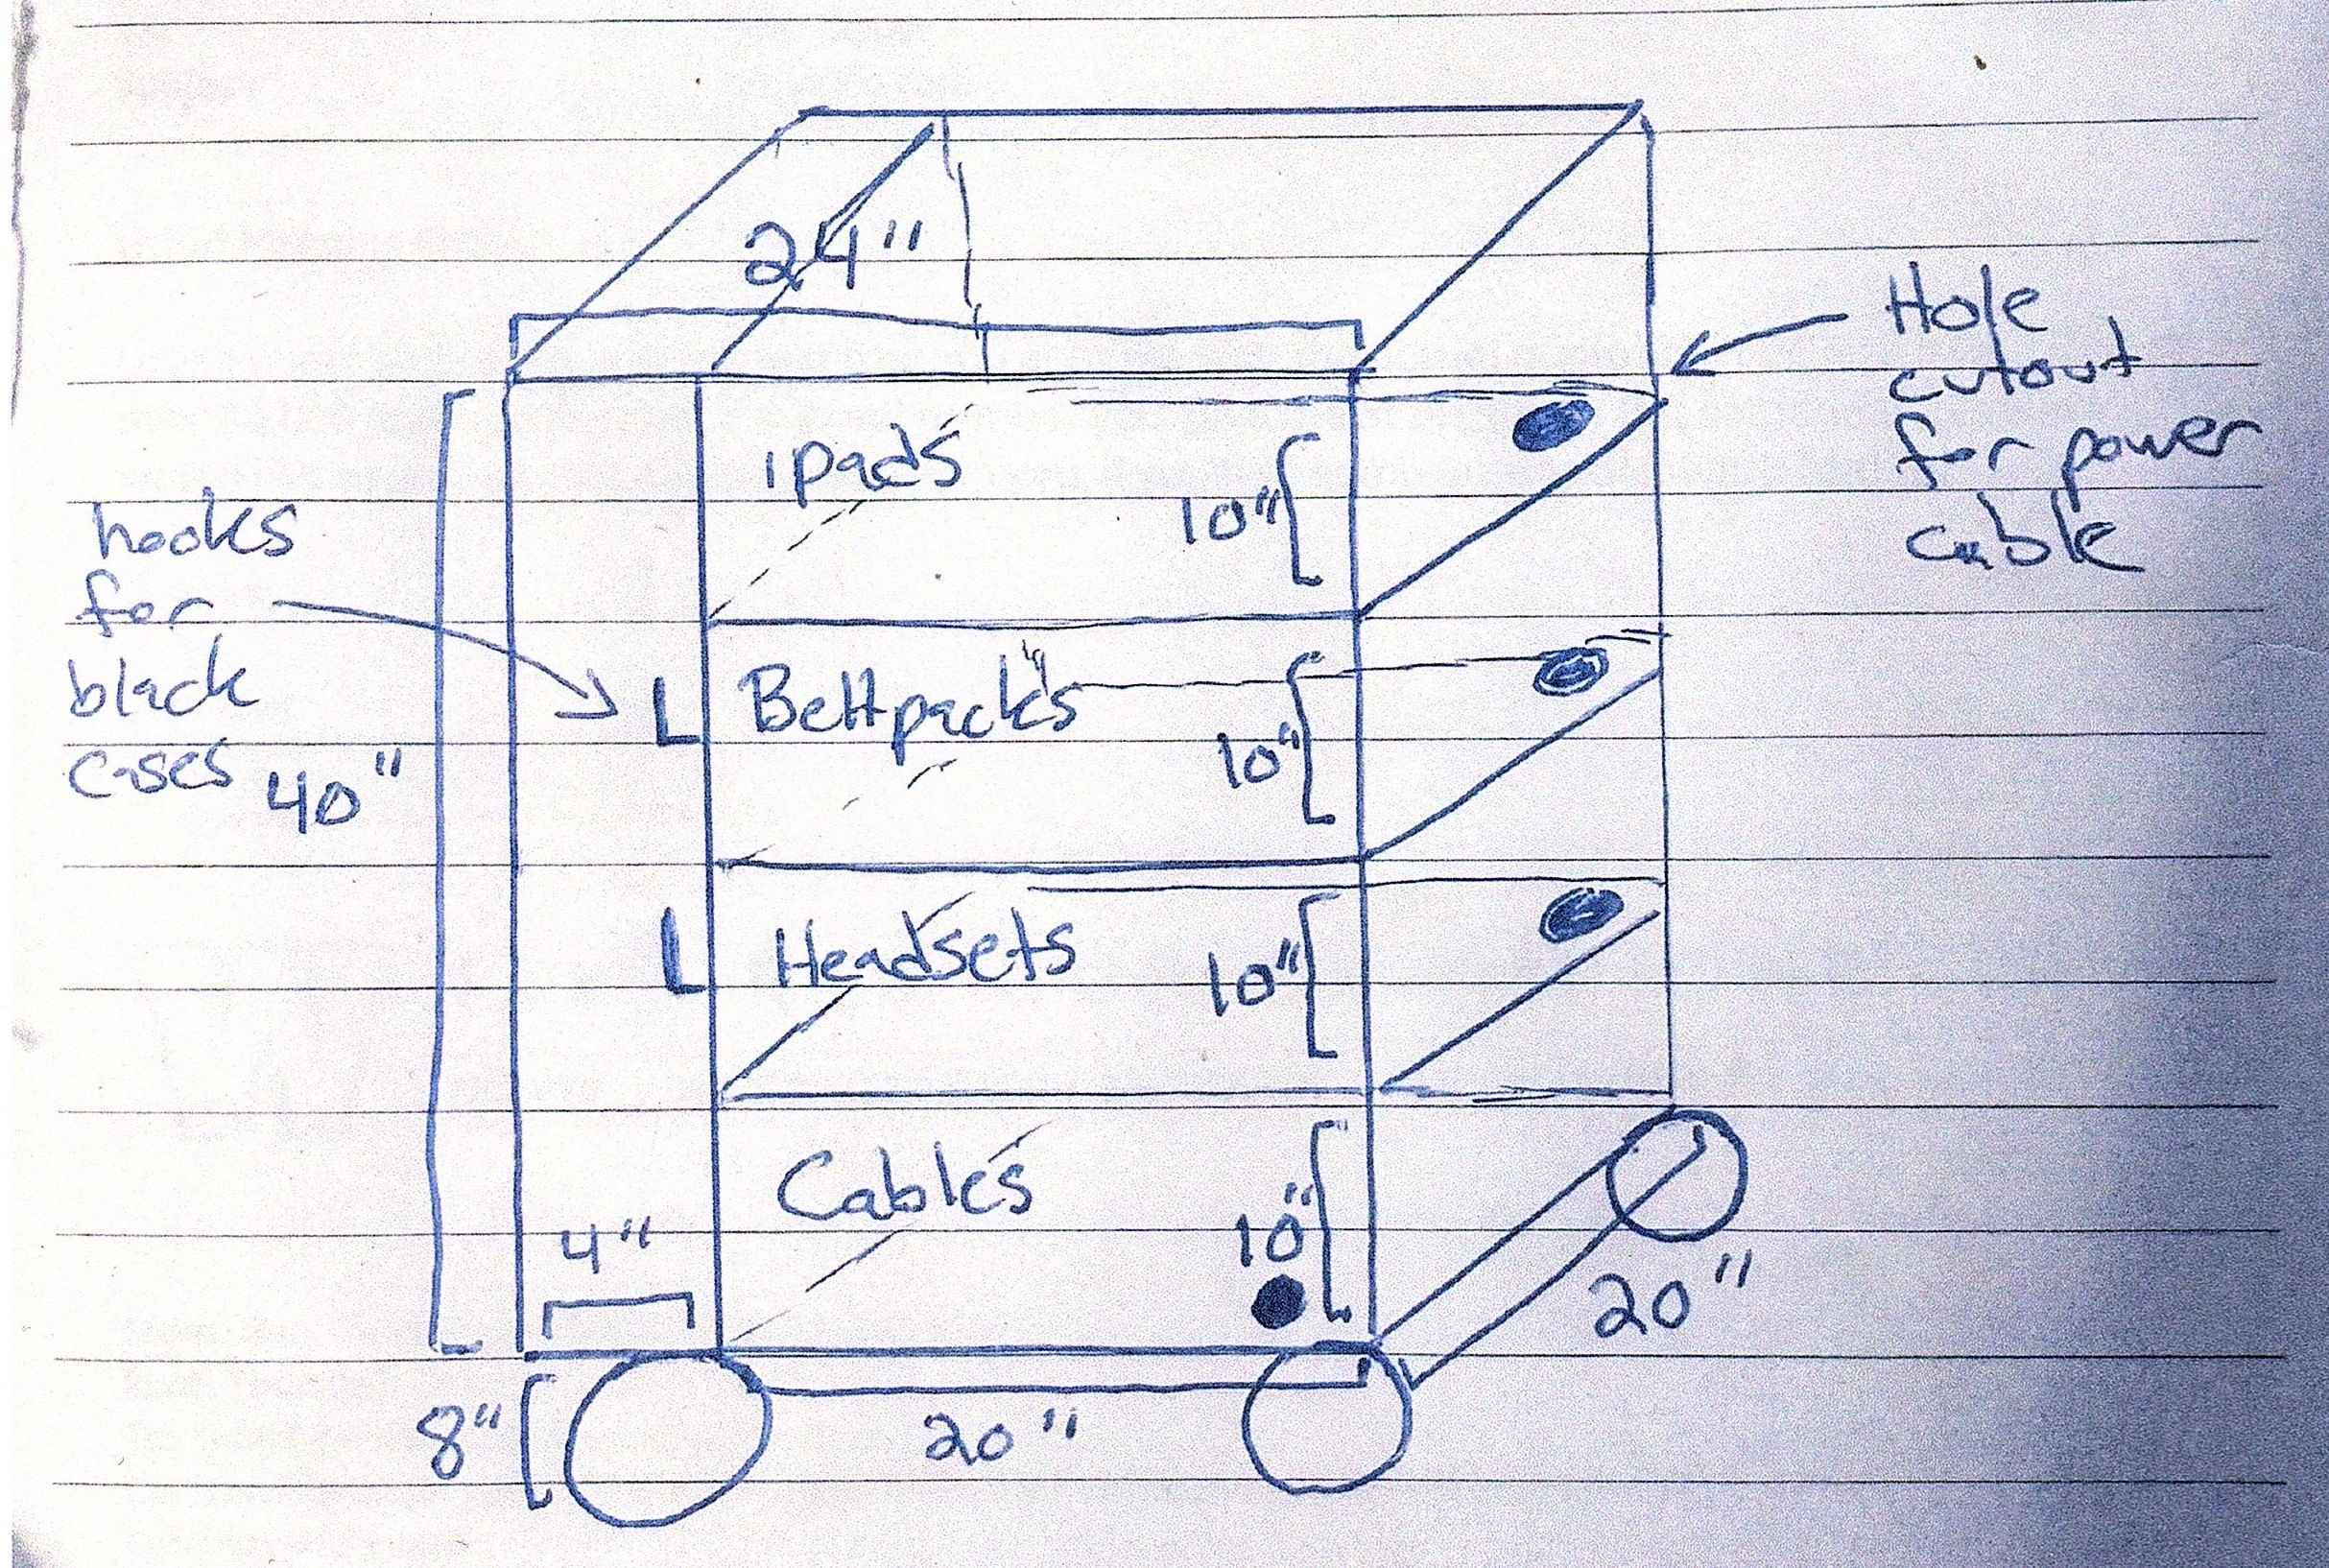 24"
Hole
cutout
for power
cable
ipads
10"
hooks
for
black
cases
40"
Beltpacks
10"
Headsets
10"
Cables
10"
4"
20"
8"
20"